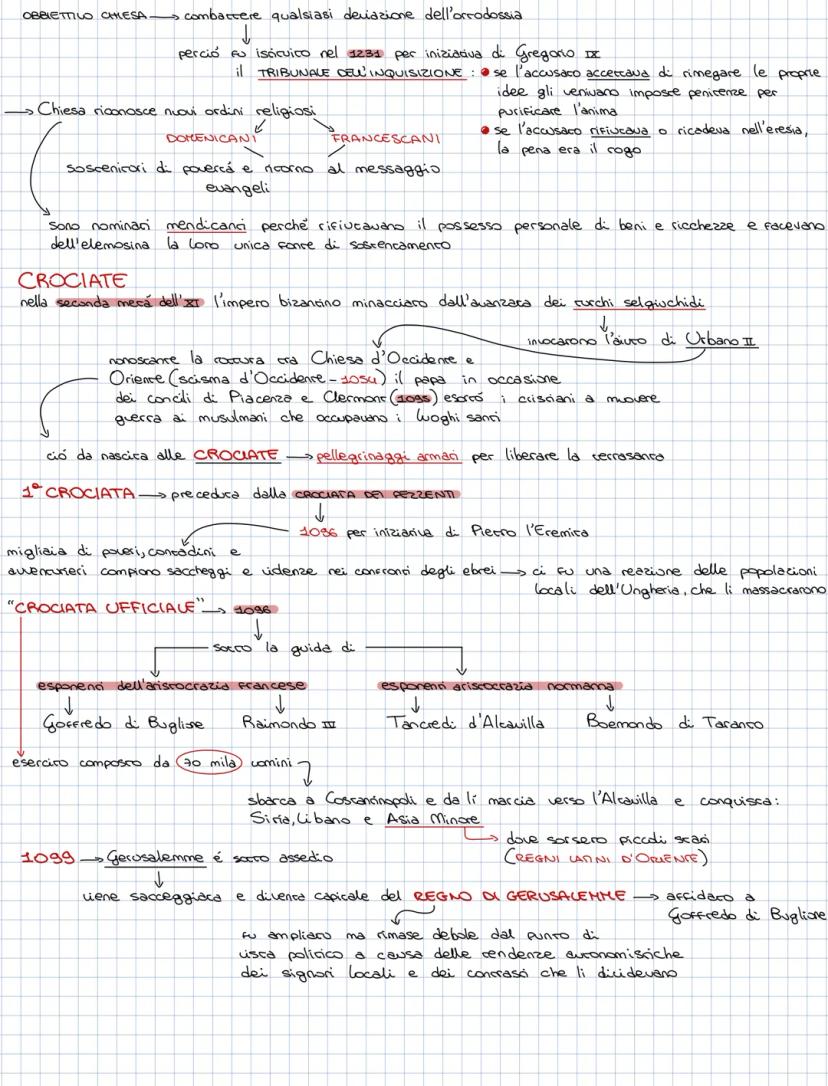 OBBIETTIVO CHIESA → combattere qualsiasi deviazione dell'ortodossia
perció fu istituito nel 1231 per iniziativa di Gregorio IX
il TRIBUNALE DELL'INQUISIZIONE : • se l'accusato accettava di rimegare le proprie
idee gli venivano imposte penitenze per
purificare l'anima
• se l'accusato rifiutava o ricadeva nell'eresia,
la pena era il rogo
→ Chiesa riconosce nuovi ordini religiosi
DOMENICANI FRANCESCANI
sostenitori di povertá e ritorno al messaggio
evangeli
sono nominati mendicanti perché rifiutavano il possesso personale di beni e ricchezze e facevano
dell'elemosina la loro unica fonte di sostentamento
CROCIATE
nella seconda metá dell'XI l'impero bizantino minacciato dall'avanzata dei turchi selgiuchidi
invocarono l'aiuto di Urbano II
nonostante la rottura tra Chiesa d'Occidente e
Oriente (scisma d'Occidente - 1054) il papa in occasione
dei concili di Piacenza e Clermont (1095) esortó i cristiani a muovere
guerra ai musulmani che occupavano i luoghi santi
ció da nascita alle CROCIATE → pellegrinaggi armati per liberare la terrasanta
1ª CROCIATA → preceduta dalla CROCIATA DEI PEZZENTI
1096 per iniziativa di Pietro l'Eremita
migliaia di poveri, contadini e
avventurieri compiono saccheggi e videnze nei confronti degli ebrei → ci fu una reazione delle popolazioni
locali dell'Ungheria, che li massacrarono
"CROCIATA UFFICIALE" → 1096
sotto la guida di
esponenti dell'aristocrazia francese esponenti aristocrazia normanna
Goffredo di Buglione Raimondo IV Tancredi d'Altavilla Boemondo di Taranto
esercito composto da 70 mila uomini
sbarca a Costantinopoli e da lí marcia verso l'Altavilla e conquista:
Siria, Libano e Asia Minore
dove sorsero piccoli stati
(REGNI LATINI D'ORIENTE)
1099 → Gerusalemme é sotto assedio
viene sacceggiata e diventa capitale del REGNO DI GERUSALEMME → affidato a
Goffredo di Buglione
fu ampliato ma rimase debole dal punto di
vista politico a causa delle tendenze autonomistiche
dei signori locali e dei contrasti che li dividevano